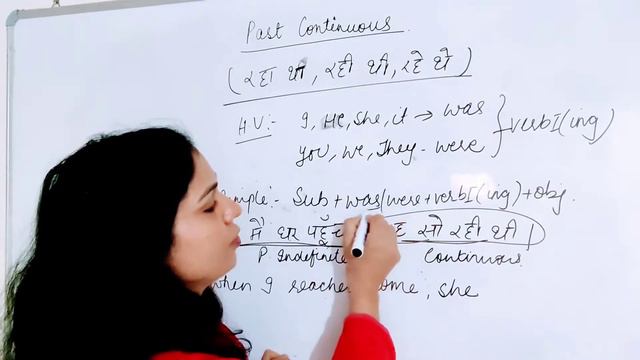 Past Continuous
(रहा था, रही थी, रहे थे)
HV:- I, He, she, it → was
You, we, They - were } verbI(ing)
Sub + was/were + verbI(ing) + Obj.
मैं घर सो रही थी।
P Indefinite Continuous
when I reached home, she